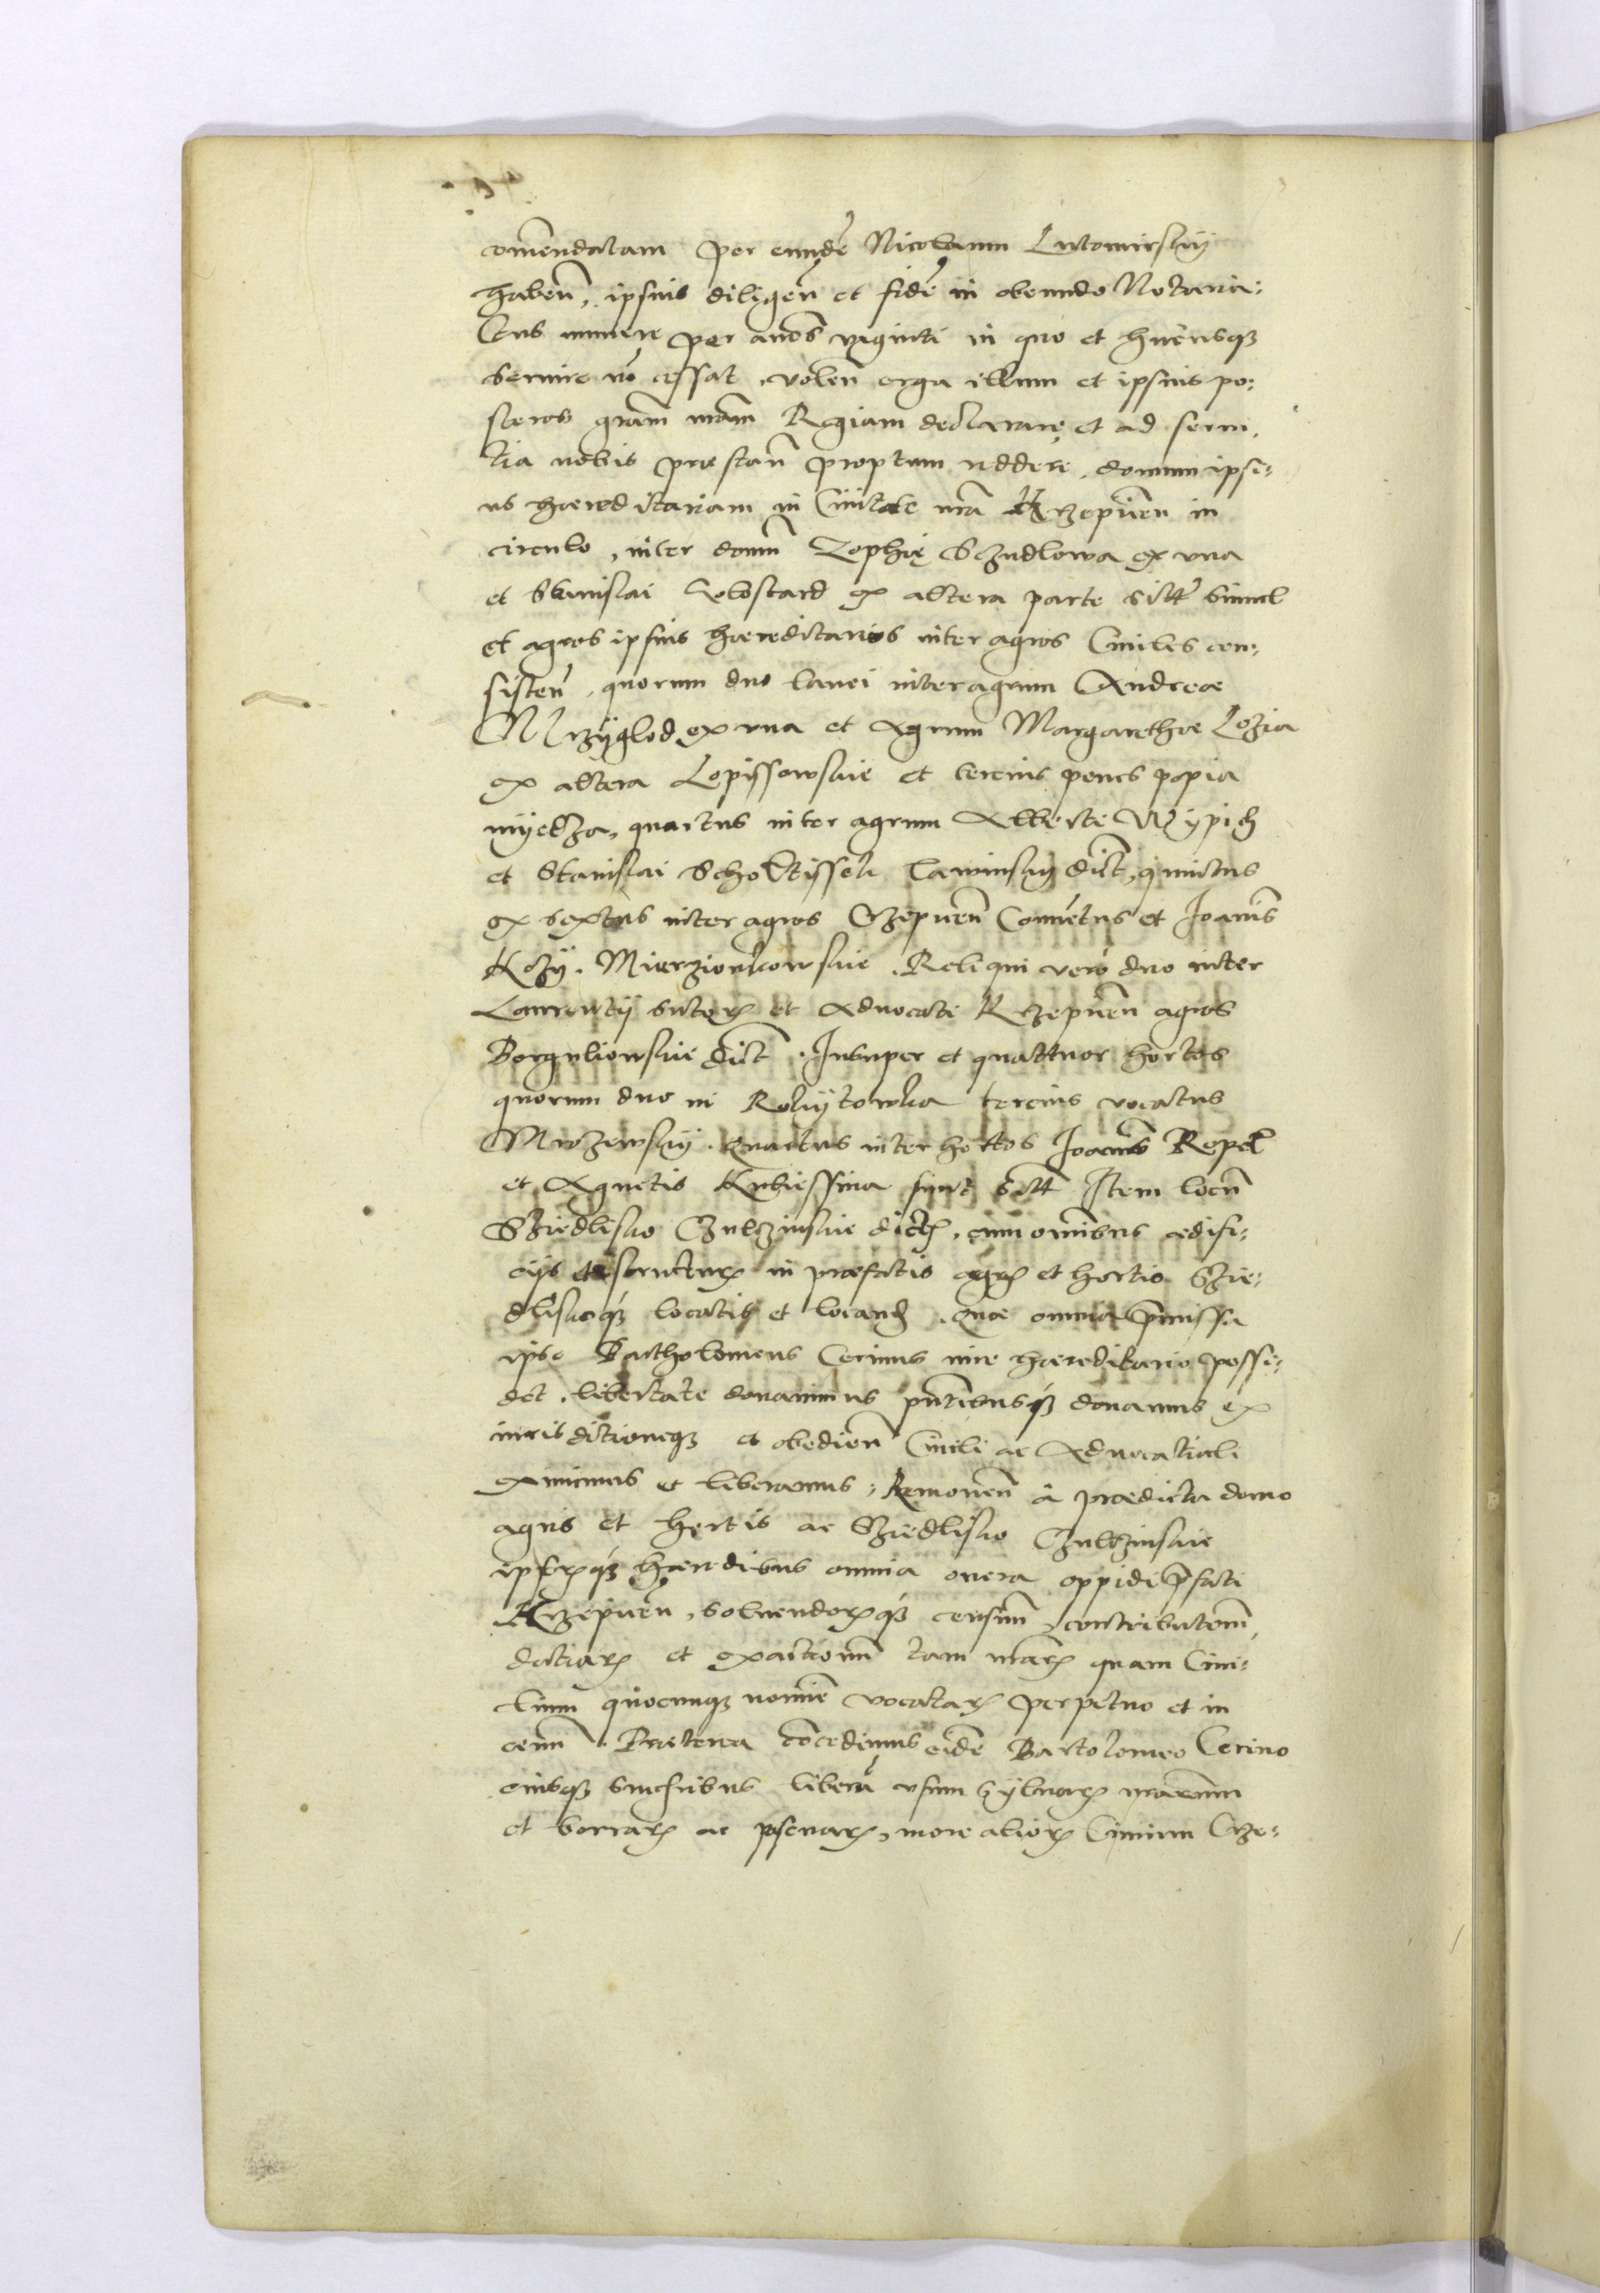 comendatam per eunde Nicolaum Lutomirskÿ
haben, ipsius diligen et fide in obeundo Notaria:
tus munere per anos viginti in quo et hucusqꝫ
seruire no cessat, volen erga illum et ipsius po:
steros gram nram Regiam declarare et ad serui,
tia nobis præstan proptum reddere, domum ipsi:
us hæreditariam in Ciuitate nra Krzepicen in
circulo, inter domu Zophię Szudlowa ex vna
et Stanislai ex altera parte sitt simul
et agros ipsius hæreditarios inter agros Ciuiles con:
sisten, quorum duo lanei inter agrum Andreæ
Mrzÿglod ex vna et agrum Margarethæ Lozia
ex altera Lopissowskie et tercius penes popia
nÿedza, quartus inter agrum Alberti Wÿpich
et Stanislai Scholtÿssek Lawinskÿ dict, quintus
ex sextus inter agros Crzepicen Conuetus et Joanis
Kozÿ. Mierzionkowskie. Reliqui vero duo inter
Laurentÿ sutoris et Aduocati Krzepicen agros
Borgulionskie dict. Insuper et quattuor hortos
quorum duo in Rokÿtowka tercius vocatus
Mrozewskÿ. Quartus inter hortos Joanis Repel
et Agnetis Kubiessina sunt sitt Item locu
Sziedlisko Culzinskie dictu, cum omibus ædifi:
cÿs et structuris in præfatis agris et hortis Szie:
dliskoqꝫ locatis et locand. Quæ omnia pmissa
ipse Bartholomeus Cerinus iure hæreditario possi:
det. libertate donauimus pntibusqꝫ donamus ex
iurisdictioneqꝫ et obedien Ciuili ac Aduocatiali
eximimus et liberamus, Remouen à prædicta domo
agris et hortis ac Sziedlisko Culzinskie
ipsorumqꝫ hæredibus omnia onera oppidi pfati
Krzepicen, soluendorumqꝫ censuum contributionu,
datiarum et exactionu tam nrarum quam Ciui:
lium quocunqꝫ nomine vocatarum perpetuo et in
æuu. Præterea cocedimus eide Bartolomeo Cerino
eiusqꝫ successoribus libera vsum sÿluarum nrarum
et borrarum ac piscinarum, more aliorum Ciuium Crze: